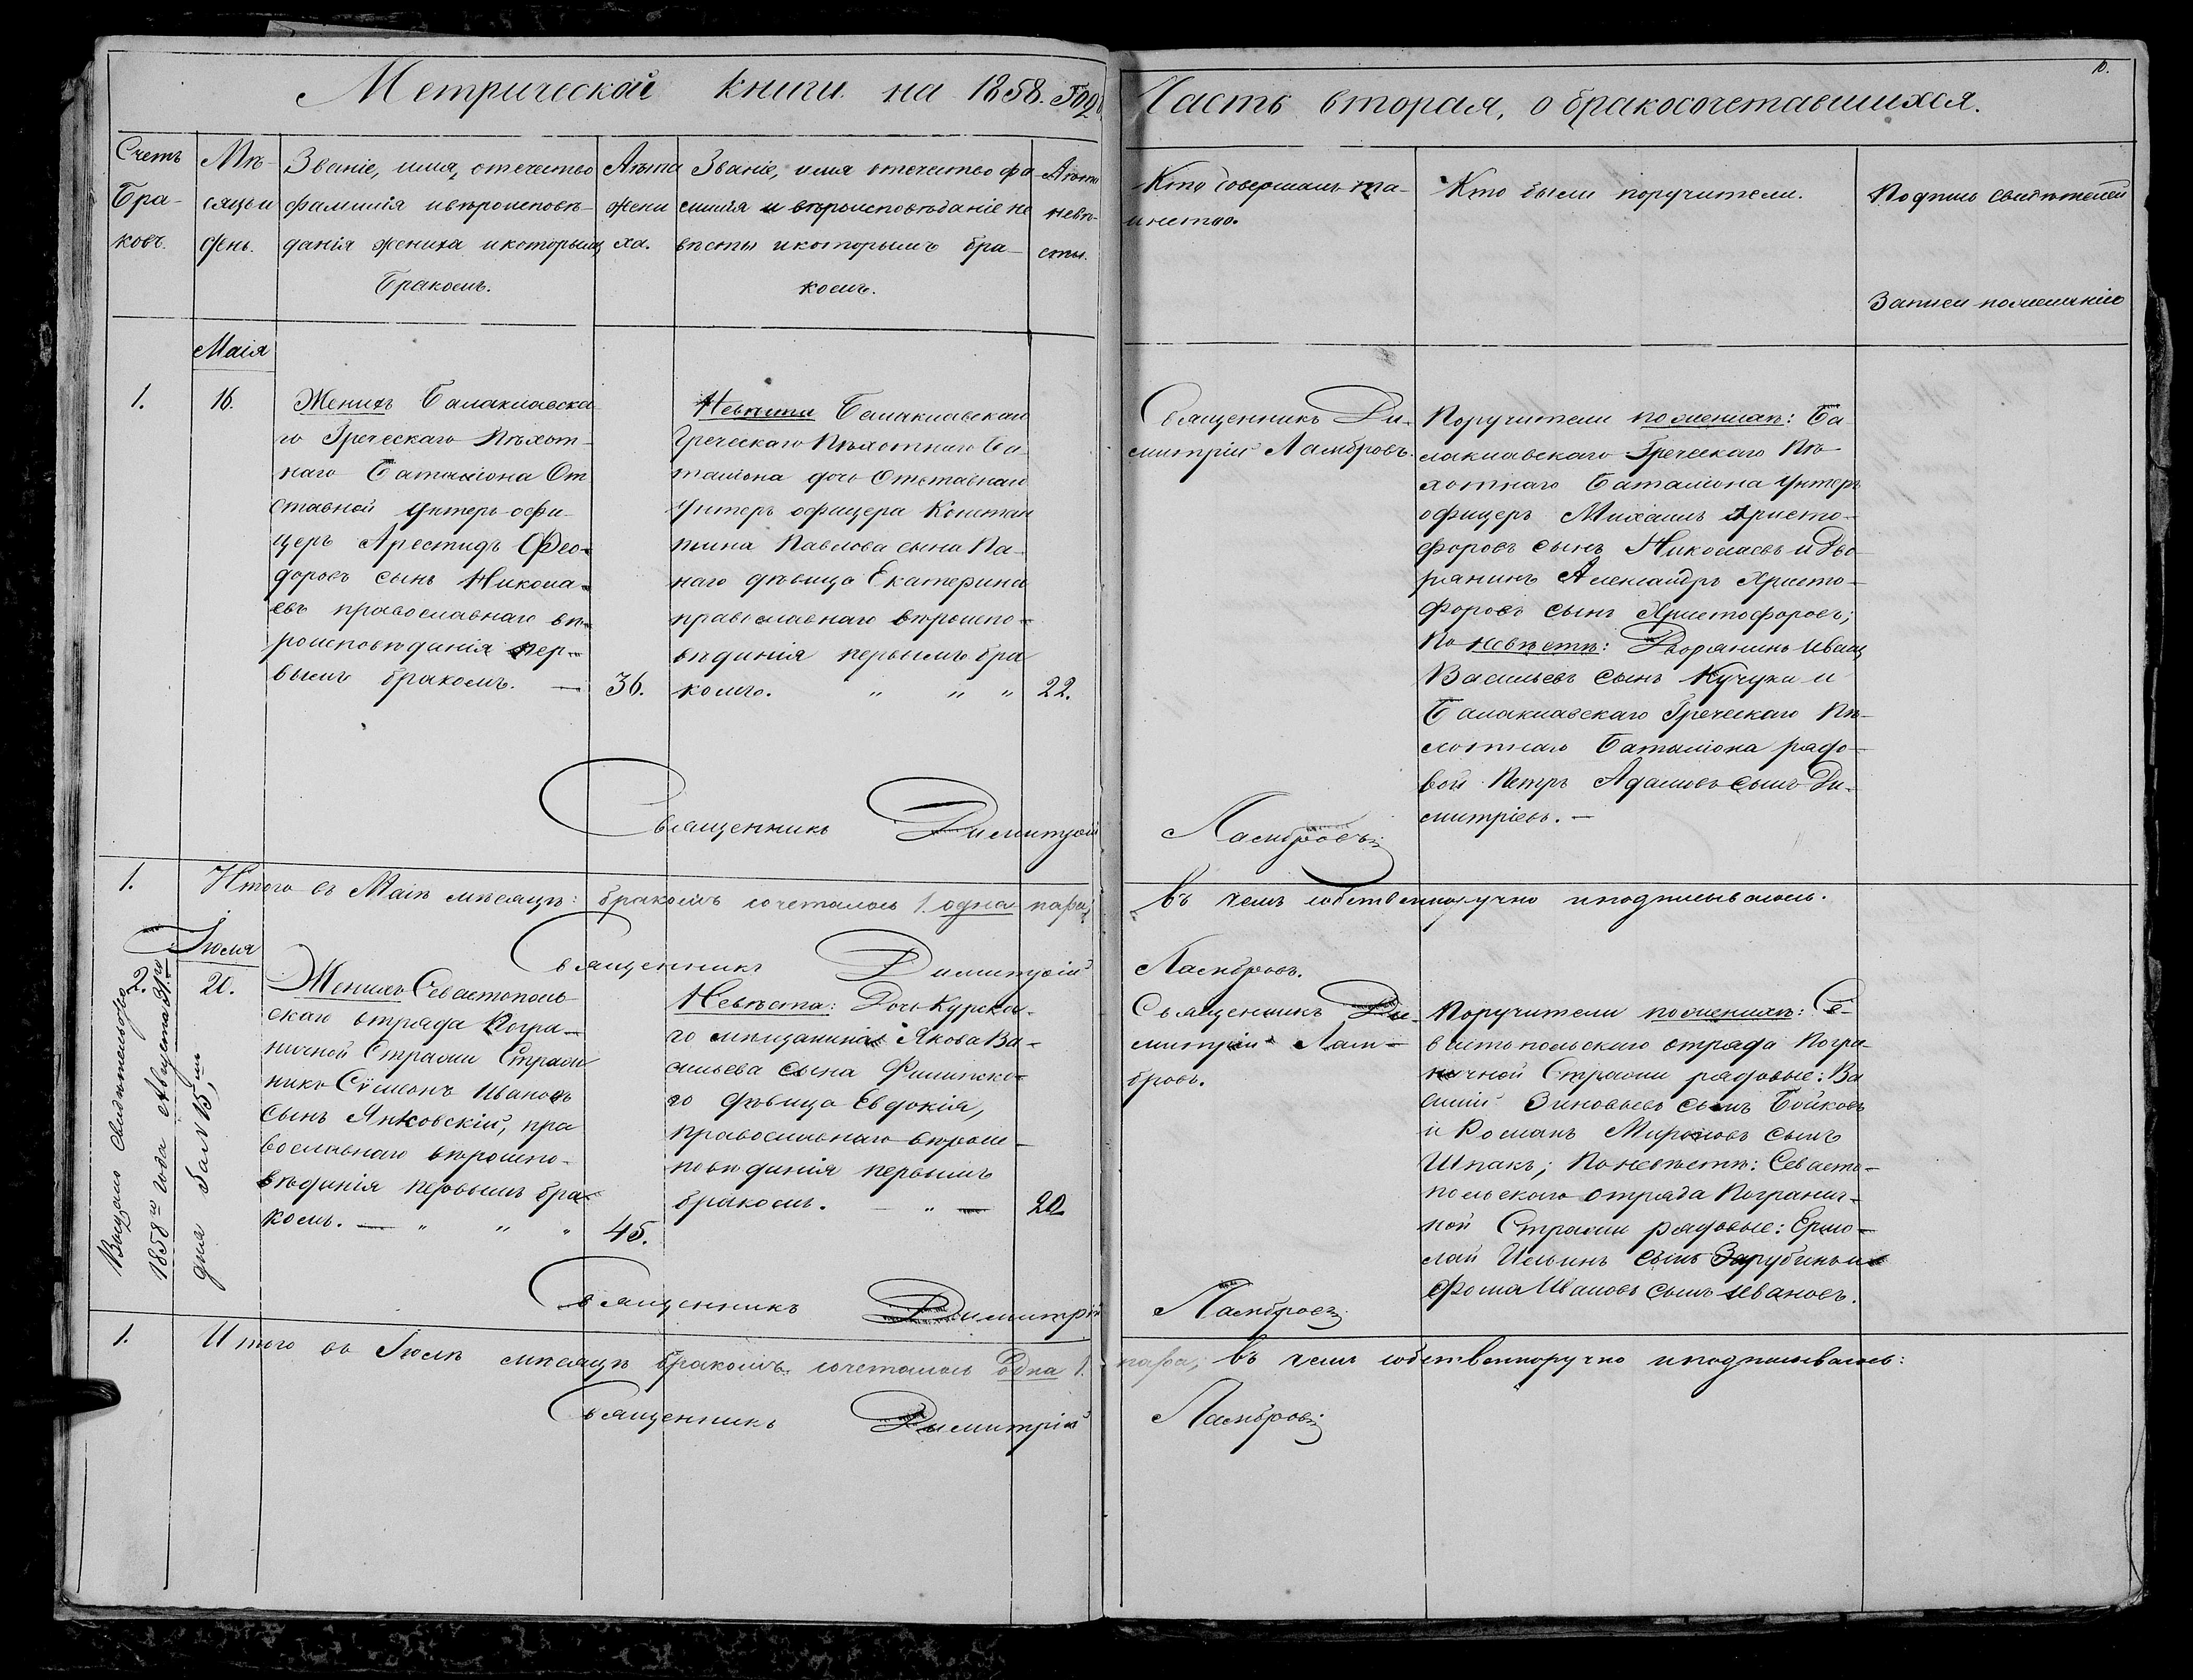 Метрической книги на 1858. Годъ
Часть вторая, о бракосочетавшихся.
10.
Счетъ
Бра-
ковъ.
Мѣ-
сяцъ и
день.
Званіе, имя, отечество
фамилія и вѣроисповѣ-
данія жениха и которымъ
бракомъ.
Лѣта
жени
ха.
Званіе, имя отечество фа
милія и вѣроисповѣданіе не
вѣсты и которымъ бра-
комъ.
Лѣта
невѣ-
сты.
Кто совершалъ та-
инство.
Кто были поручители.
Подпись свидѣтелей
Записи по желанію
Маія
1.
16.
Женихъ Балаклавска
го Греческаго Пѣхот-
наго Баталіона От
ставной унтеръ-офи-
церъ Арестидъ Фео-
доровъ сынъ Никола-
евъ православнаго вѣ-
роисповѣданія пер-
вымъ бракомъ. —
36.
Невѣста Балаклавскаго
Греческаго Пѣхотнаго Ба
таліона дочь Отставнаго
Унтеръ офицера Констан
тина Павлова сына Па-
наго дѣвица Екатерина
православнаго вѣроиспо-
вѣданія первымъ бра
комъ. " " "
22.
Священникъ Ди-
митрій Ламбровъ.
Поручители по женихѣ: Ба
лаклавскаго Греческаго Пѣ
хотнаго Баталіона унтеръ
офицеръ Михаилъ Христо-
форовъ сынъ Николаевъ и Дво
рянинъ Александръ Христо-
форовъ сынъ Христофоровъ;
По невѣстѣ: Дворянинъ Иванъ
Васильевъ сынъ Кучука и
Балаклавскаго Греческаго Пѣ-
хотнаго Баталіона рядо-
вой Петръ Адамовъ сынъ Ди-
митріевъ. —
Священникъ Димитрій Ламбровъ
1.
Итого въ Маіѣ мѣсяцѣ: бракомъ сочеталось 1. одна пара, въ чемъ собственноручно и подписываюсь.
Священникъ Димитрій Ламбровъ.
Іюля
2.
20.
Выдано свидѣтельство
1858го года Августа 21го
дня за № 15,м
Женихъ Севастополь
скаго отряда Погра-
ничной Стражи Страж
никъ Сѵмеонъ Ивановъ
сынъ Янковскій, пра
вославнаго вѣроиспо-
вѣданія первымъ бра-
комъ. — " " "
45.
Невѣста: Дочь Курска-
го мѣщанина Якова Ва-
сильева сына Филипско-
го дѣвица Евдокія,
православнаго вѣроис-
повѣданія первымъ
бракомъ. — " —
20.
Священникъ Ди-
митрій Лам-
бровъ.
Поручители по женихѣ: Се-
вастопольскаго отряда Погра-
ничной Стражи рядовые: Ва
силій Зиновьевъ сынъ Бойковъ
и Романъ Мироновъ сынъ
Шпакъ; По невѣстѣ: Севасто-
польскаго отряда Погранич-
ной Стражи рядовые: Ермо-
лай Ильинъ сынъ Зарубинъ и
Фома Ивановъ сынъ Ивановъ.
Священникъ Димитрій Ламбровъ
1.
Итого въ Іюлѣ мѣсяцѣ бракомъ сочеталось Одна 1. пара, въ чемъ собственноручно и подписываюсь:
Священникъ Димитрій Ламбровъ